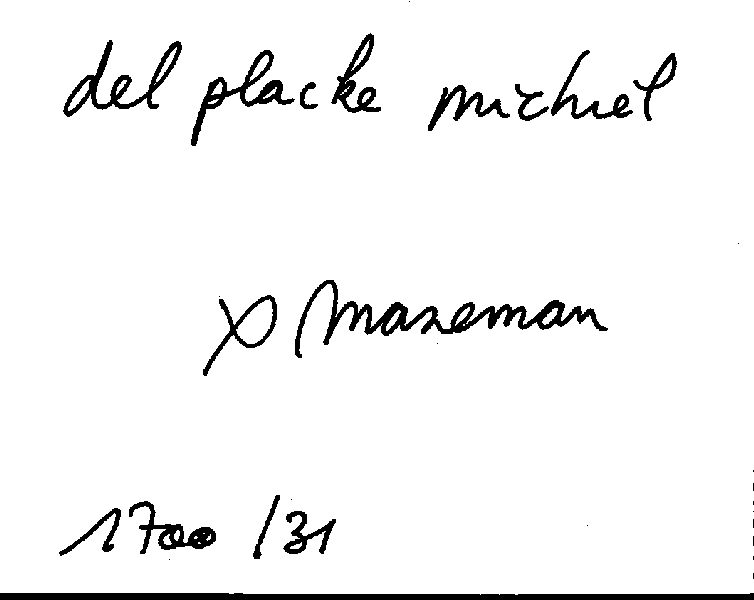 del placke michiel
x Mazeman
1700 /31